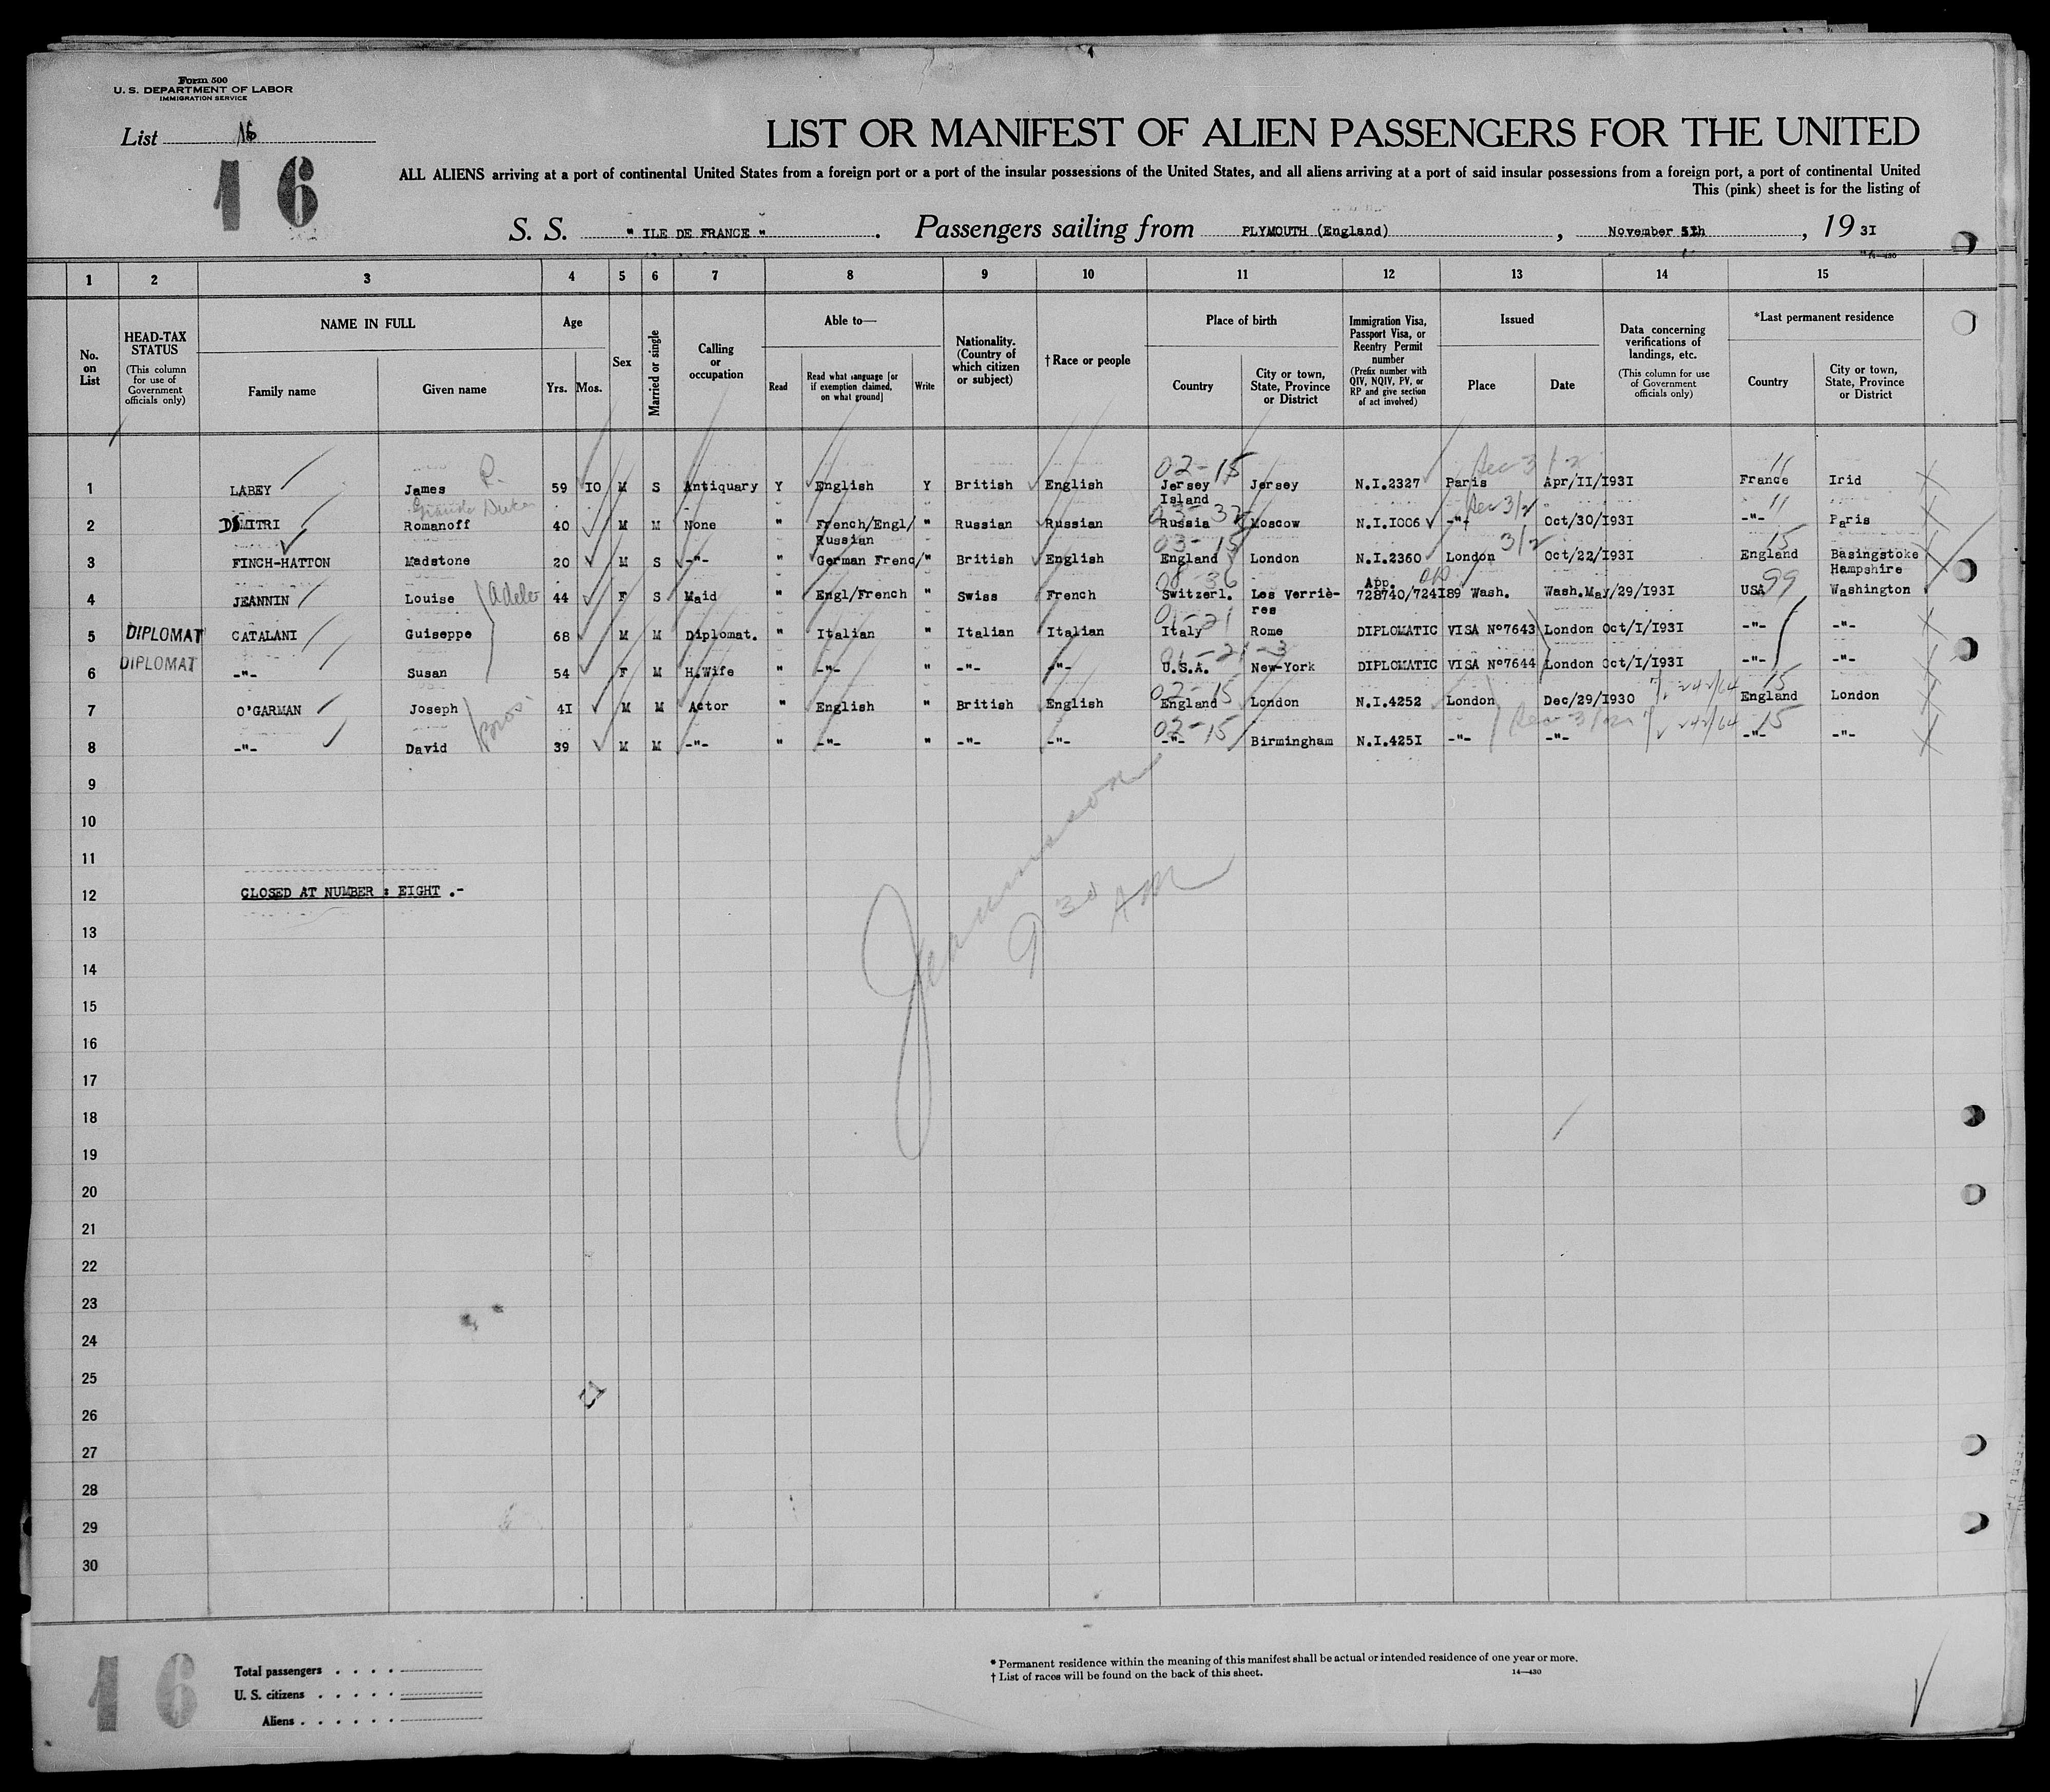 Form 500
U. S. DEPARTMENT OF LABOR
IMMIGRATION SERVICE
List 16
16
LIST OR MANIFEST OF ALIEN PASSENGERS FOR THE UNITED
ALL ALIENS arriving at a port of continental United States from a foreign port or a port of the insular possessions of the United States, and all aliens arriving at a port of said insular possessions from a foreign port, a port of continental United
This (pink) sheet is for the listing of
S. S. " ILE DE FRANCE " . Passengers sailing from PLYMOUTH (England) , November 5th , 19 3I
14—430
1 2 3 4 5 6 7 8 9 10 11 12 13 14 15
No. on List
HEAD-TAX STATUS (This column for use of Government officials only)
NAME IN FULL
Family name Given name
Age
Yrs. Mos.
Sex
Married or single
Calling or occupation
Able to—
Read Read what language [or if exemption claimed, on what ground] Write
Nationality. (Country of which citizen or subject)
† Race or people
Place of birth
Country City or town, State, Province or District
Immigration Visa, Passport Visa, or Reentry Permit number (Prefix number with QIV, NQIV, PV, or RP and give section of act involved)
Issued
Place Date
Data concerning verifications of landings, etc. (This column for use of Government officials only)
*Last permanent residence
Country City or town, State, Province or District
02-15 11
1 LABEY James R. 59 IO M S Antiquary Y English Y British English Jersey Island Jersey N.I.2327 Paris Apr/II/I93I France Irid
Grande Duke 03-32 11
2 DMITRI Romanoff 40 M M None " French/Engl/ Russian " Russian Russian Russia Moscow N.I.I006 -"- Oct/30/I93I -"- Paris
03-15 3/2 15
3 FINCH-HATTON Madstone 20 M S -"- " German Frenc/ " British English England London N.I.2360 London Oct/22/I93I England Basingstoke Hampshire
08-36 99
4 JEANNIN Louise Adele 44 F S Maid " Engl/French " Swiss French Switzerl. Les Verriè-res App. 728740/724I89 Wash. Wash.May/29/I93I USA Washington
01-21
5 DIPLOMAT CATALANI Guiseppe 68 M M Diplomat. " Italian " Italian Italian Italy Rome DIPLOMATIC VISA Nº7643 London Oct/I/I93I -"- -"-
01-21-3
6 DIPLOMAT -"- Susan 54 F M H.Wife " -"- " -"- -"- U.S.A. New-York DIPLOMATIC VISA Nº7644 London Oct/I/I93I -"- -"-
02-15 15
7 O'GARMAN Joseph 4I M M Actor " English " British English England London N.I.4252 London Dec/29/I930 England London
Bros. 02-15 15
8 -"- David 39 M M -"- " -"- " -"- -"- -"- Birmingham N.I.425I -"- -"- -"- -"-
9
10
11
12 CLOSED AT NUMBER : EIGHT .-
9 30 AM
13
14
15
16
17
18
19
20
21
22
23
24
25
26
27
28
29
30
16
Total passengers
U. S. citizens
Aliens
* Permanent residence within the meaning of this manifest shall be actual or intended residence of one year or more.
† List of races will be found on the back of this sheet. 14—430